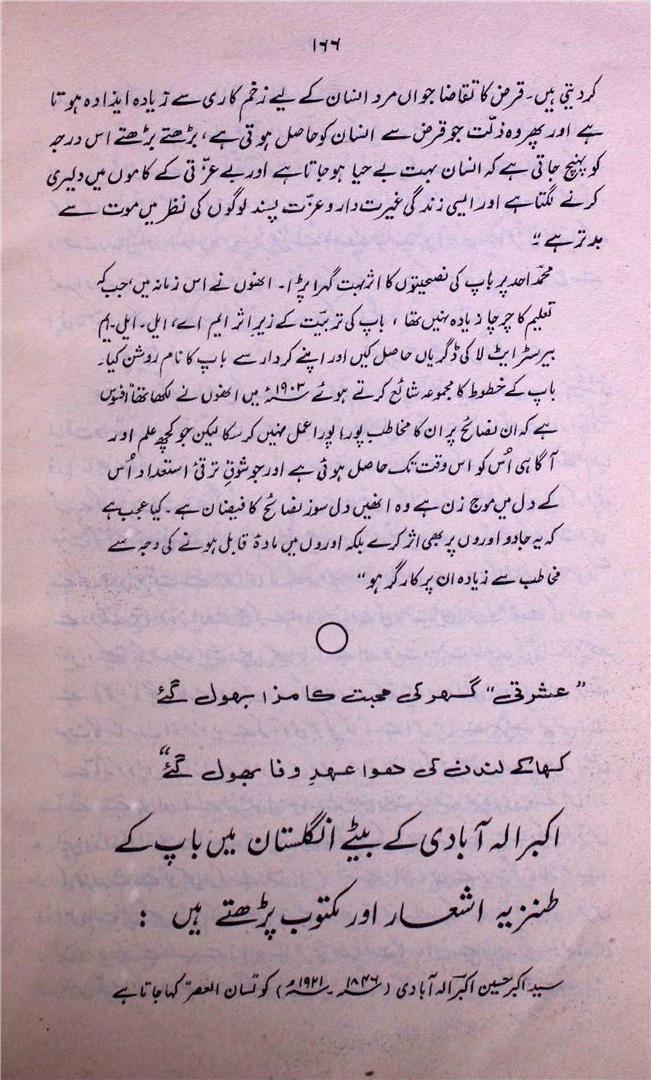 ۱۶۶
کردیتی ہیں۔ قرض کا تقاضا جواں مرد انسان کے لیے زخم کاری سے زیادہ ایذا دہ ہوتا
ہے اور پھر وہ ذلّت جو قرض سے انسان کو حاصل ہوتی ہے، بڑھتے بڑھتے اس درجہ
کو پہنچ جاتی ہے کہ انسان بہت بے حیا ہوجاتا ہے اور بے عزّتی کے کاموں میں دلیری
کرنے لگتا ہے اور ایسی زندگی غیرت دار و عزّت پسند لوگوں کی نظر میں موت سے
بدتر ہے“
محمّد احد پر باپ کی نصیحتوں کا اثر بہت گہرا پڑا۔ انھوں نے اس زمانہ میں، جب کہ
تعلیم کا چرچا زیادہ نہیں تھا، باپ کی تربیّت کے زیرِ اثر ایم اے، ایل۔ ایل۔ایم
بیرسٹر ایٹ لا کی ڈگریاں حاصل کیں اور اپنے کردار سے باپ کا نام روشن کیا۔
باپ کے خطوط کا مجموعہ شائع کرتے ہوئے ۱۹۰۳ء میں انھوں نے لکھا تھا ”افسوس
ہے کہ ان نصائح پر ان کا مخاطب پورا پورا عمل نہیں کرسکا لیکن جو کچھ علم اور
آگاہی اُس کو اس وقت تک حاصل ہوئی ہے اور جو شوقِ ترقیٔ استعداد اُس
کے دل میں موج زن ہے وہ انھیں دل سوز نصائح کا فیضان ہے۔ کیا عجب ہے
کہ یہ جادو اوروں پر بھی اثر کرے بلکہ اوروں میں مادۂ قابل ہونے کی وجہ سے
مخاطب سے زیادہ ان پر کارگر ہو“
”عشرتی“ گھر کی محبت کا مزا بھول گئے
کھاکے لندن کی ھوا عہدِ وفا بھول گئے“
اکبر الہ آبادی کے بیٹے انگلستان میں باپ کے
طنزیہ اشعار اور مکتوب پڑھتے ہیں :
سید اکبر حسین اکبرؔ الہ آبادی (۱۸۴۶ء ۔ ۱۹۲۱ء) کو لسان العصر کہا جاتا ہے